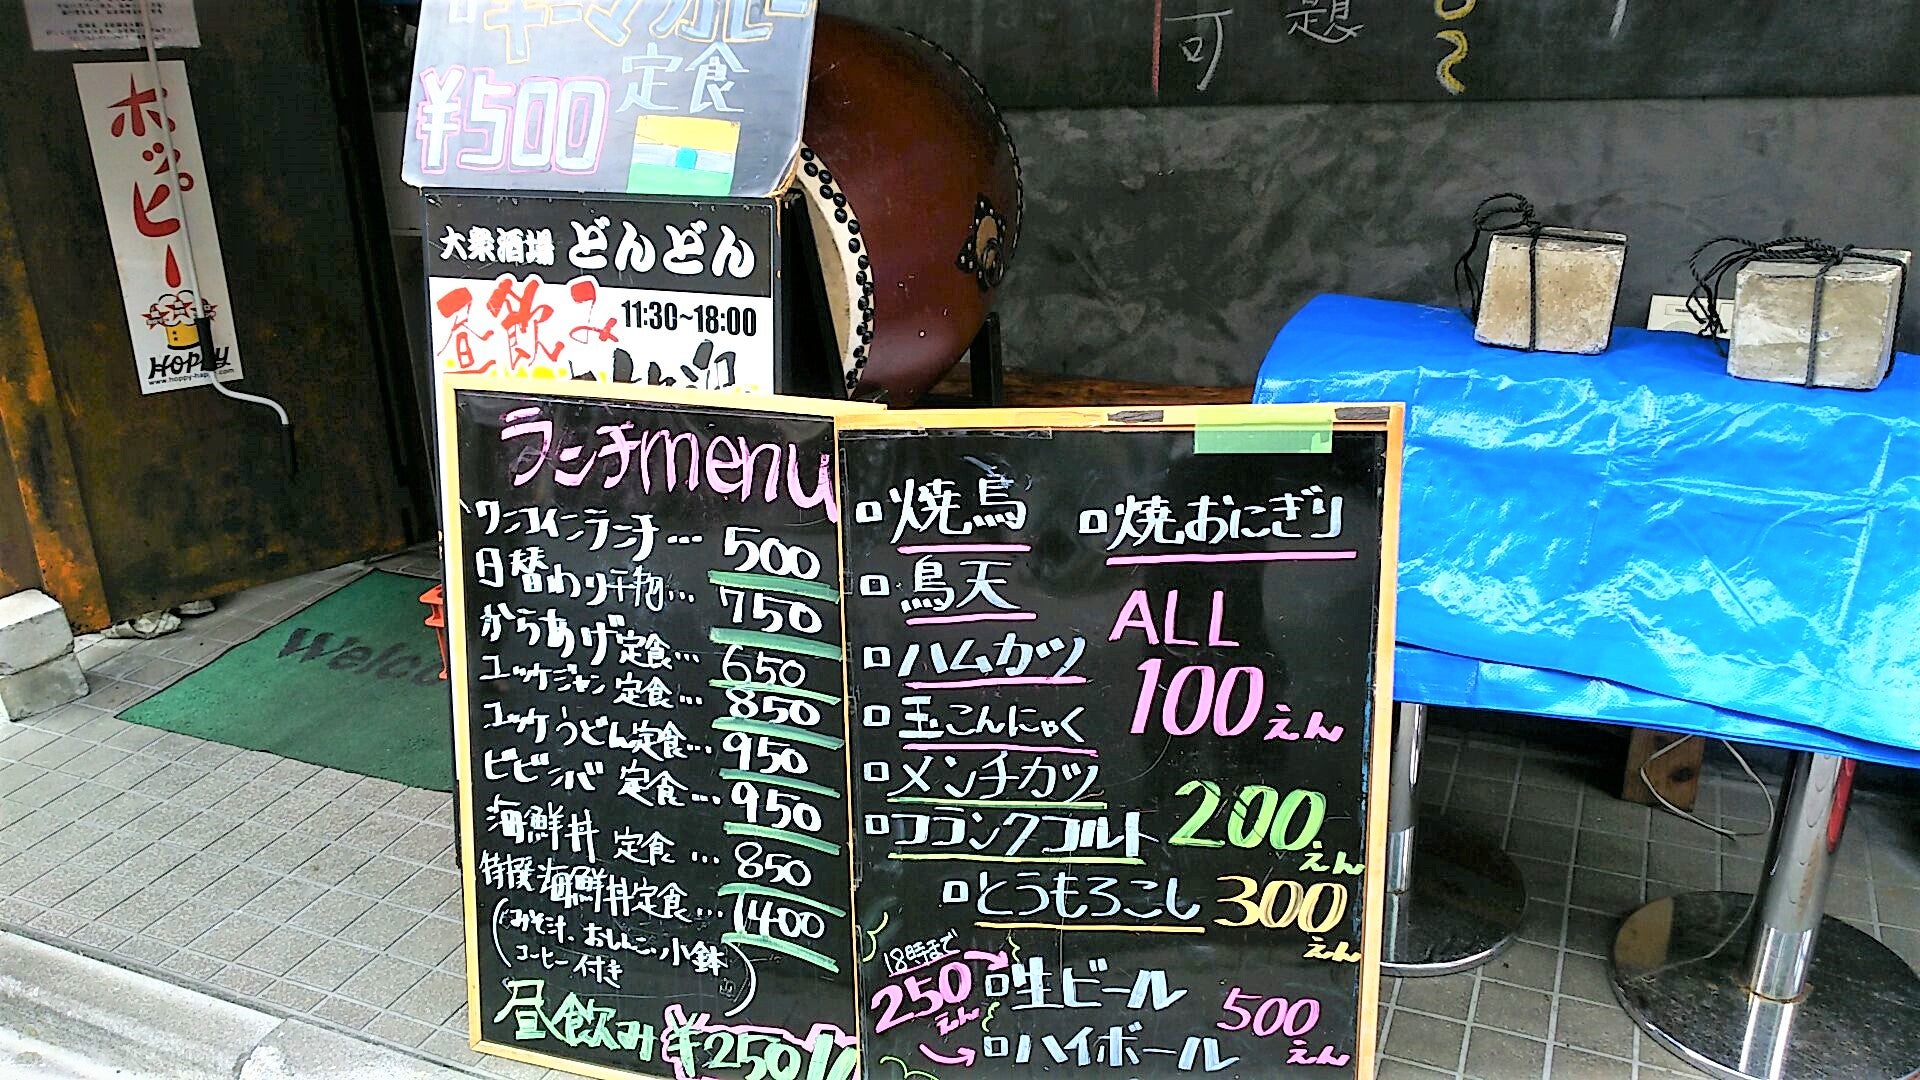 ホッピー
HOPPY
www.hoppy-happy.com
キーマカレー
定食
¥500
大衆酒場 どんどん
昼飲み 11:30~18:00
可 題
Welco
ランチmenu
ワンコインランチ… 500
日替わり… 750
からあげ定食… 650
ユッケジャン定食… 850
ユッケうどん定食… 950
ビビンバ 定食… 950
海鮮丼 定食… 850
特撰海鮮丼定食… 1400
(みそ汁、おしんこ、小鉢
コーヒー付き)
昼飲み¥250
□焼鳥 □焼おにぎり
□鳥天
□ハムカツ
□玉こんにゃく
ALL
100えん
□メンチカツ
□フランクフルト 200えん
□とうもろこし 300えん
18時まで
250えん
□生ビール
□ハイボール
500えん